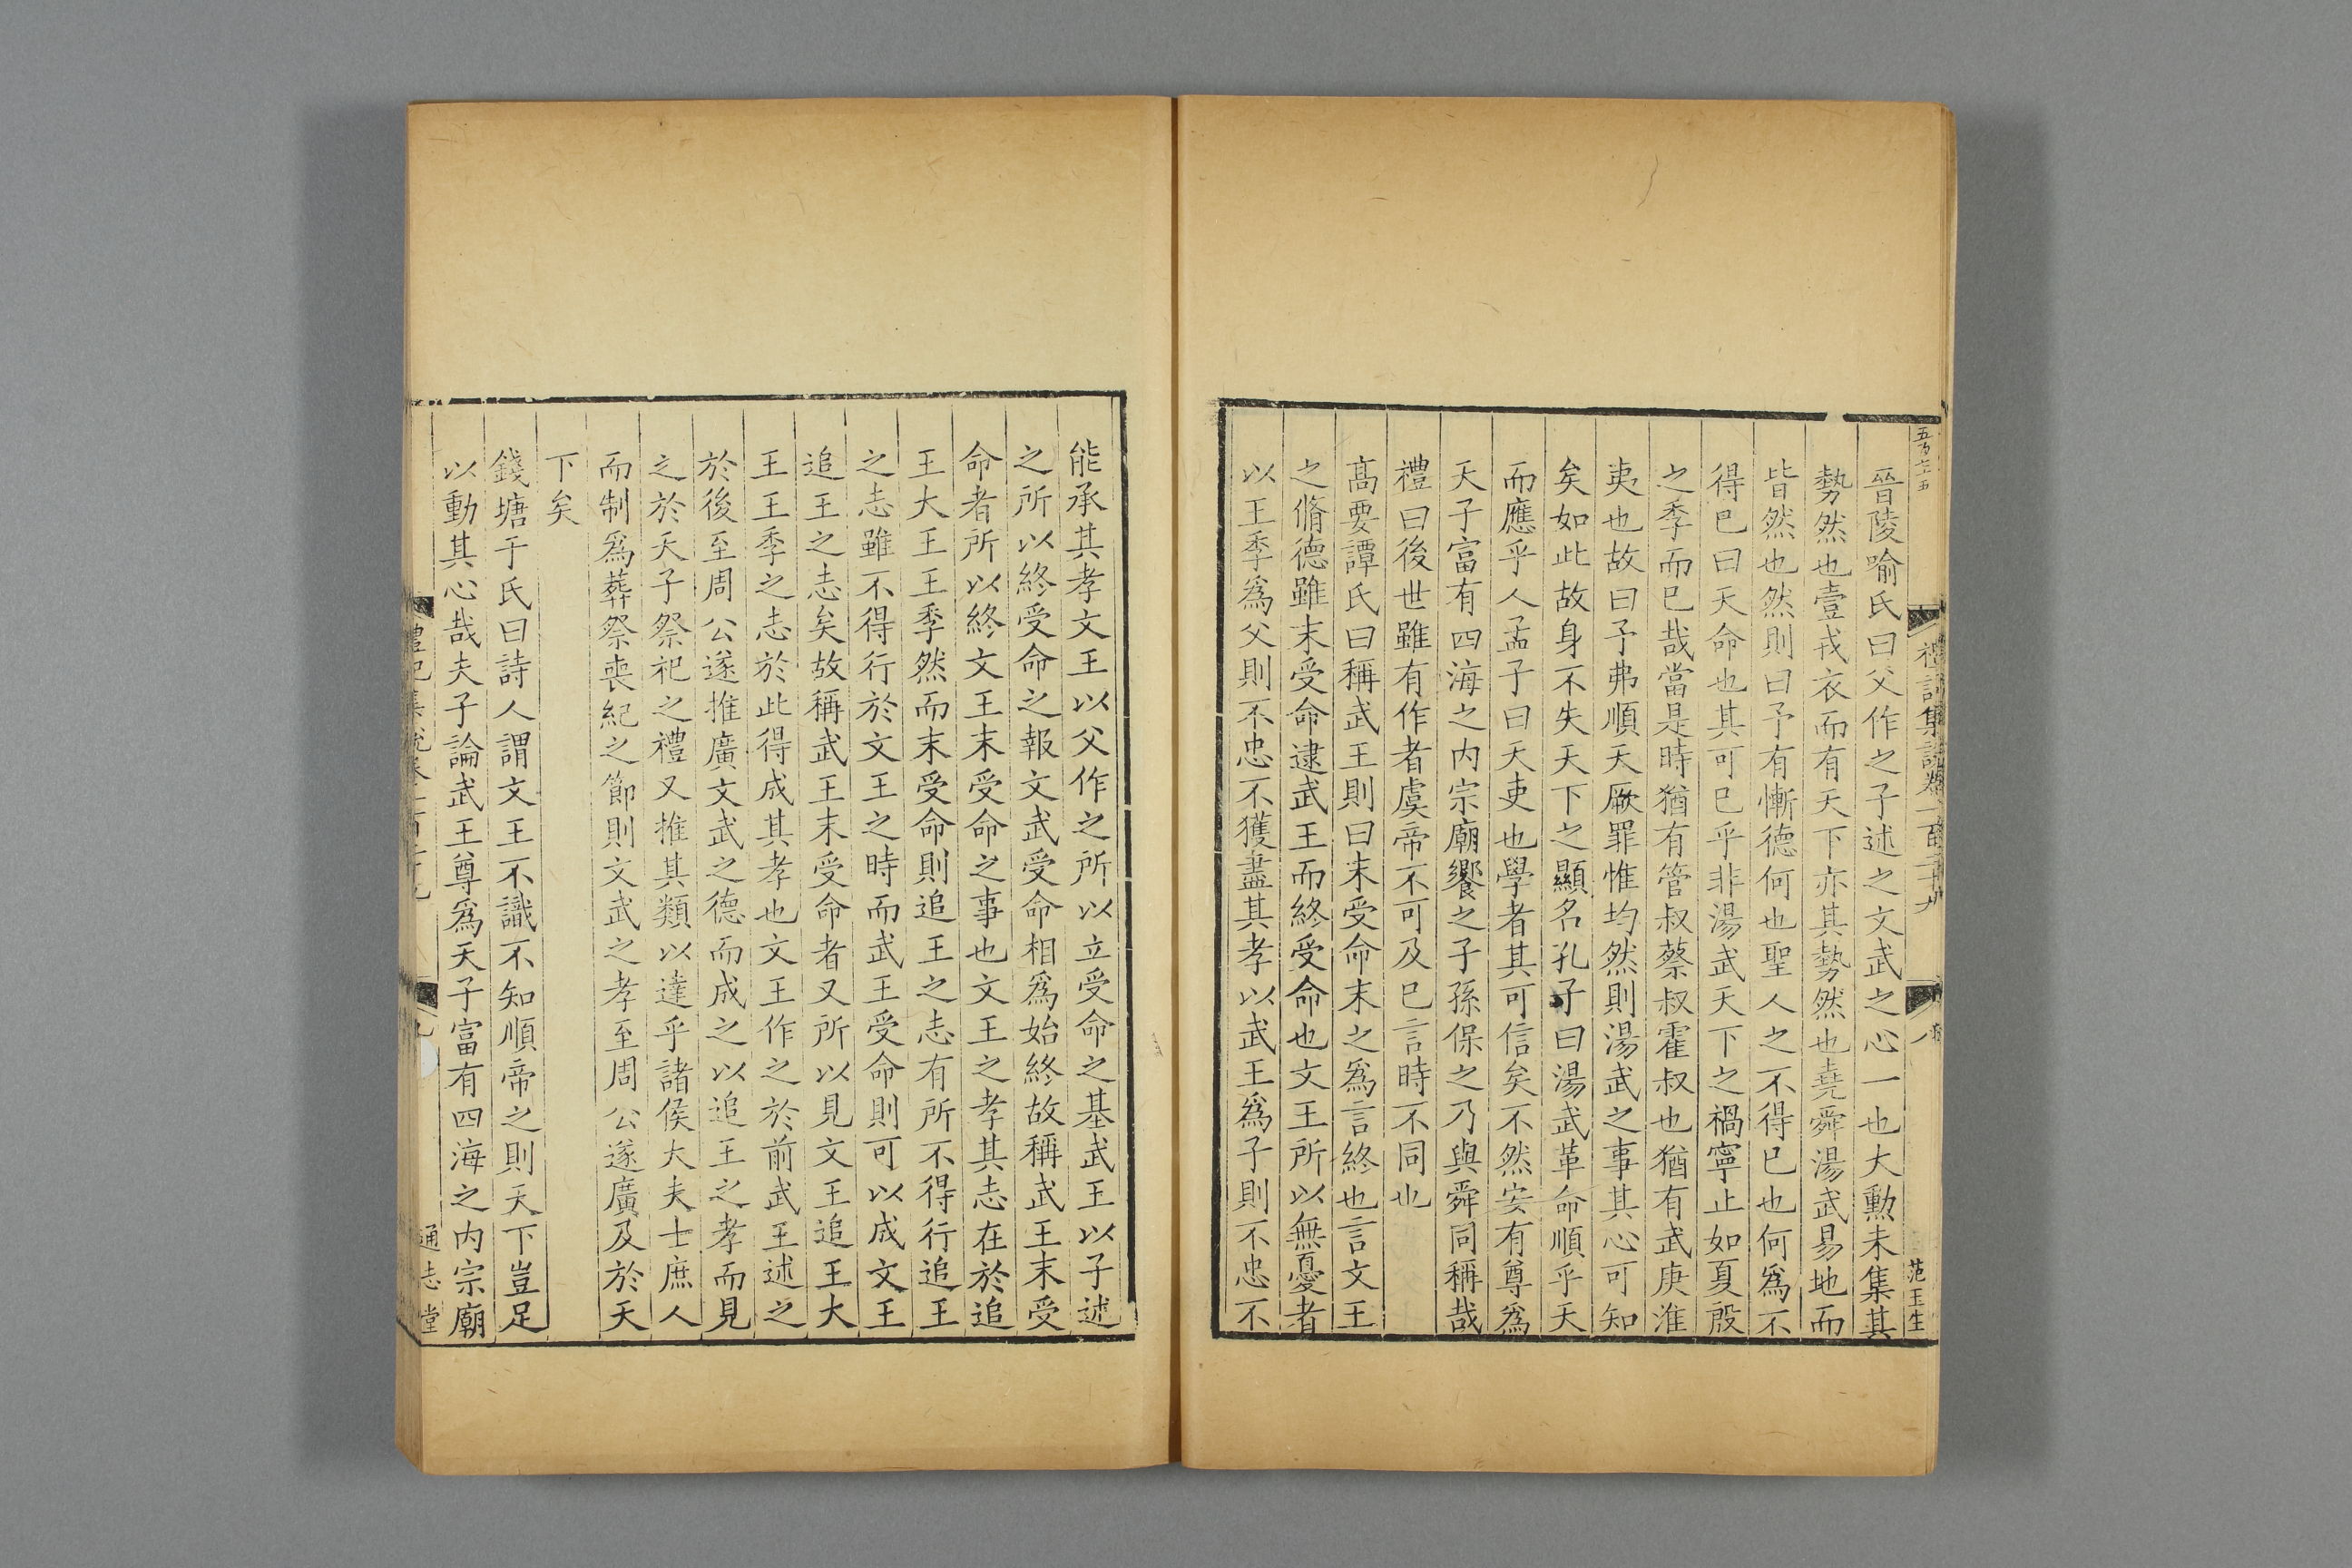 五百六十五
禮記集說卷一百二十九
八
范玉生
晉陵喻氏曰父作之子述之文武之心一也大勳未集其
勢然也壹戎衣而有天下亦其勢然也堯舜湯武易地而
皆然也然則曰予有慚德何也聖人之不得已也何爲不
得已曰天命也其可已乎非湯武天下之禍寧止如夏殷
之季而已哉當是時猶有管叔蔡叔霍叔也猶有武庚淮
夷也故曰予弗順天厥罪惟均然則湯武之事其心可知
矣如此故身不失天下之顯名孔子曰湯武革命順乎天
而應乎人孟子曰天吏也學者其可信矣不然安有尊爲
天子富有四海之内宗廟饗之子孫保之乃與舜同稱哉
禮曰後世雖有作者虞帝不可及已言時不同也
高要譚氏曰稱武王則曰末受命末之爲言終也言文王
之脩德雖末受命逮武王而終受命也文王所以無憂者
以王季爲父則不忠不獲盡其孝以武王爲子則不忠不
能承其孝文王以父作之所以立受命之基武王以子述
之所以終受命之報文武受命相爲始終故稱武王末受
命者所以終文王末受命之事也文王之孝其志在於追
王大王王季然而末受命則追王之志有所不得行追王
之志雖不得行於文王之時而武王受命則可以成文王
追王之志矣故稱武王末受命者又所以見文王追王大
王王季之志於此得成其孝也文王作之於前武王述之
於後至周公遂推廣文武之德而成之以追王之孝而見
之於天子祭祀之禮又推其類以達乎諸侯大夫士庶人
而制爲葬祭喪紀之節則文武之孝至周公遂廣及於天
下矣
錢塘于氏曰詩人謂文王不識不知順帝之則天下豈足
以動其心哉夫子論武王尊爲天子富有四海之内宗廟
禮記集說卷一百二十九
九
通志堂